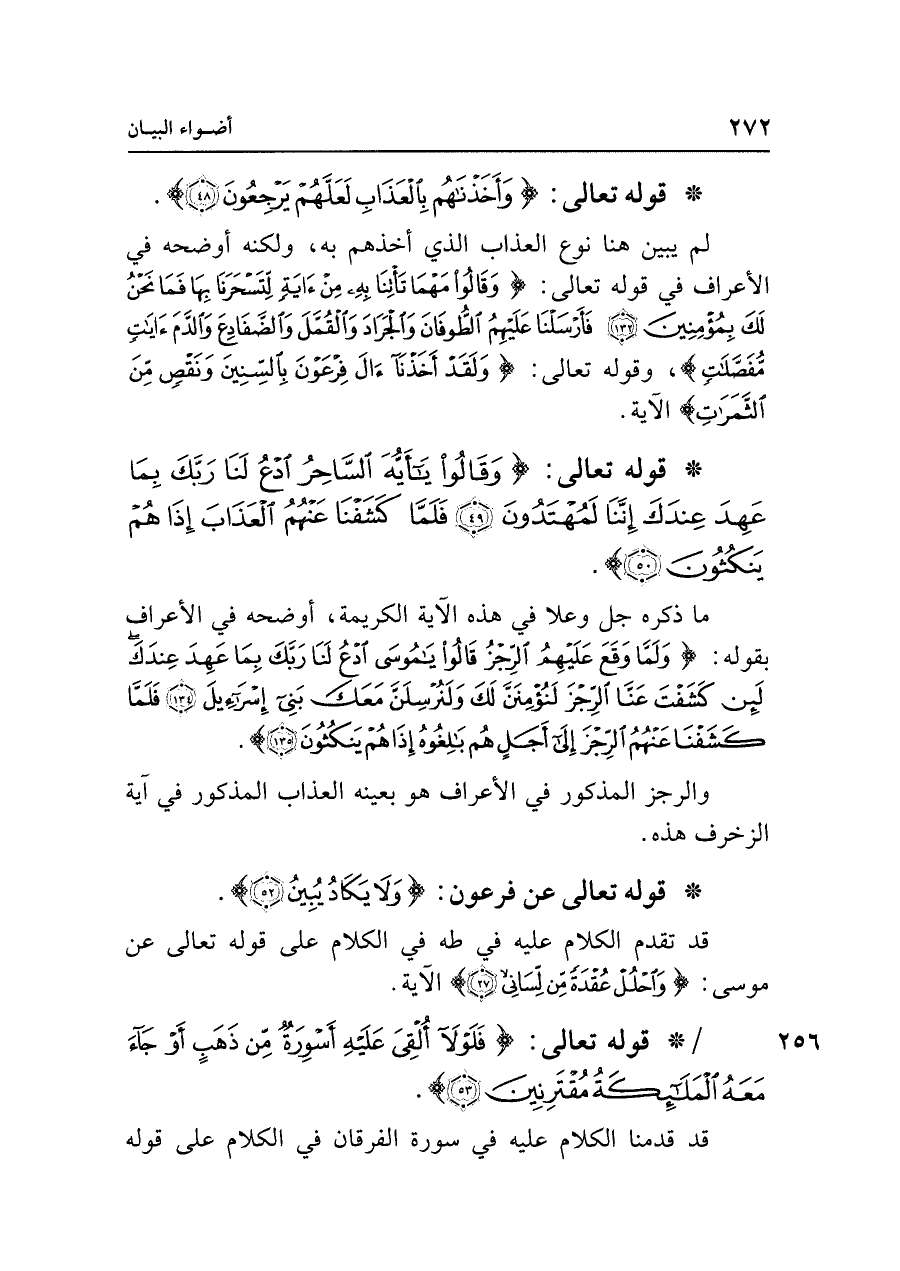 ٢٧٢ أضواء البيان
* قوله تعالى: ﴿ وَأَخَذْنَٰهُم بِٱلْعَذَابِ لَعَلَّهُمْ يَرْجِعُونَ ۝٤٨﴾ .
لم يبين هنا نوع العذاب الذي أخذهم به، ولكنه أوضحه في
الأعراف في قوله تعالى: ﴿ وَقَالُوا۟ مَهْمَا تَأْتِنَا بِهِۦ مِنْ ءَايَةٍ لِّتَسْحَرَنَا بِهَا فَمَا نَحْنُ
لَكَ بِمُؤْمِنِينَ ۝١٣٢ فَأَرْسَلْنَا عَلَيْهِمُ ٱلطُّوفَانَ وَٱلْجَرَادَ وَٱلْقُمَّلَ وَٱلضَّفَادِعَ وَٱلدَّمَ ءَايَٰتٍ
مُّفَصَّلَٰتٍ ﴾، وقوله تعالى: ﴿ وَلَقَدْ أَخَذْنَآ ءَالَ فِرْعَوْنَ بِٱلسِّنِينَ وَنَقْصٍ مِّنَ
ٱلثَّمَرَٰتِ﴾ الآية.
* قوله تعالى: ﴿ وَقَالُوا۟ يَٰٓأَيُّهَ ٱلسَّاحِرُ ٱدْعُ لَنَا رَبَّكَ بِمَا
عَهِدَ عِندَكَ إِنَّنَا لَمُهْتَدُونَ ۝٤٩ فَلَمَّا كَشَفْنَا عَنْهُمُ ٱلْعَذَابَ إِذَا هُمْ
يَنكُثُونَ ۝٥٠﴾ .
ما ذكره جل وعلا في هذه الآية الكريمة، أوضحه في الأعراف
بقوله: ﴿ وَلَمَّا وَقَعَ عَلَيْهِمُ ٱلرِّجْزُ قَالُوا۟ يَٰمُوسَى ٱدْعُ لَنَا رَبَّكَ بِمَا عَهِدَ عِندَكَ ۖ
لَئِن كَشَفْتَ عَنَّا ٱلرِّجْزَ لَنُؤْمِنَنَّ لَكَ وَلَنُرْسِلَنَّ مَعَكَ بَنِىٓ إِسْرَٰٓءِيلَ ۝١٣٤ فَلَمَّا
كَشَفْنَا عَنْهُمُ ٱلرِّجْزَ إِلَىٰٓ أَجَلٍ هُم بَٰلِغُوهُ إِذَا هُمْ يَنكُثُونَ ۝١٣٥﴾ .
والرجز المذكور في الأعراف هو بعينه العذاب المذكور في آية
الزخرف هذه.
* قوله تعالى عن فرعون: ﴿ وَلَا يَكَادُ يُبِينُ ۝٥٢﴾ .
قد تقدم الكلام عليه في طه في الكلام على قوله تعالى عن
موسى: ﴿ وَٱحْلُلْ عُقْدَةً مِّن لِّسَانِى ۝٢٧﴾ الآية.
٢٥٦ / * قوله تعالى: ﴿ فَلَوْلَآ أُلْقِىَ عَلَيْهِ أَسْوِرَةٌ مِّن ذَهَبٍ أَوْ جَآءَ
مَعَهُ ٱلْمَلَٰٓئِكَةُ مُقْتَرِنِينَ ۝٥٣﴾ .
قد قدمنا الكلام عليه في سورة الفرقان في الكلام على قوله